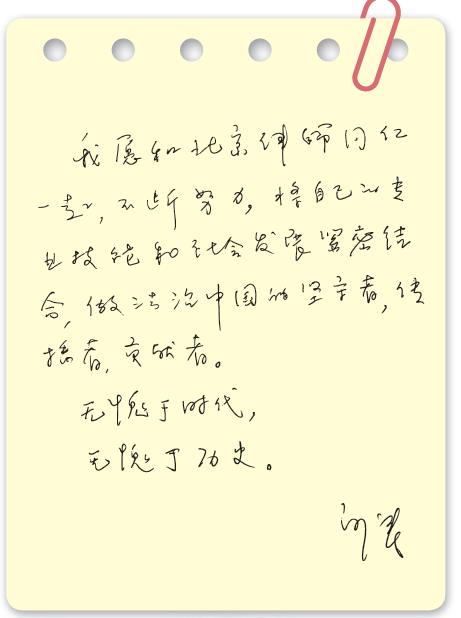 我愿和北京律师同仁
一起,不断努力,将自己的专
业技能和社会发展紧密结
合,做法治中国的坚守者,传
播者,贡献者。
无愧于时代,
无愧于历史。